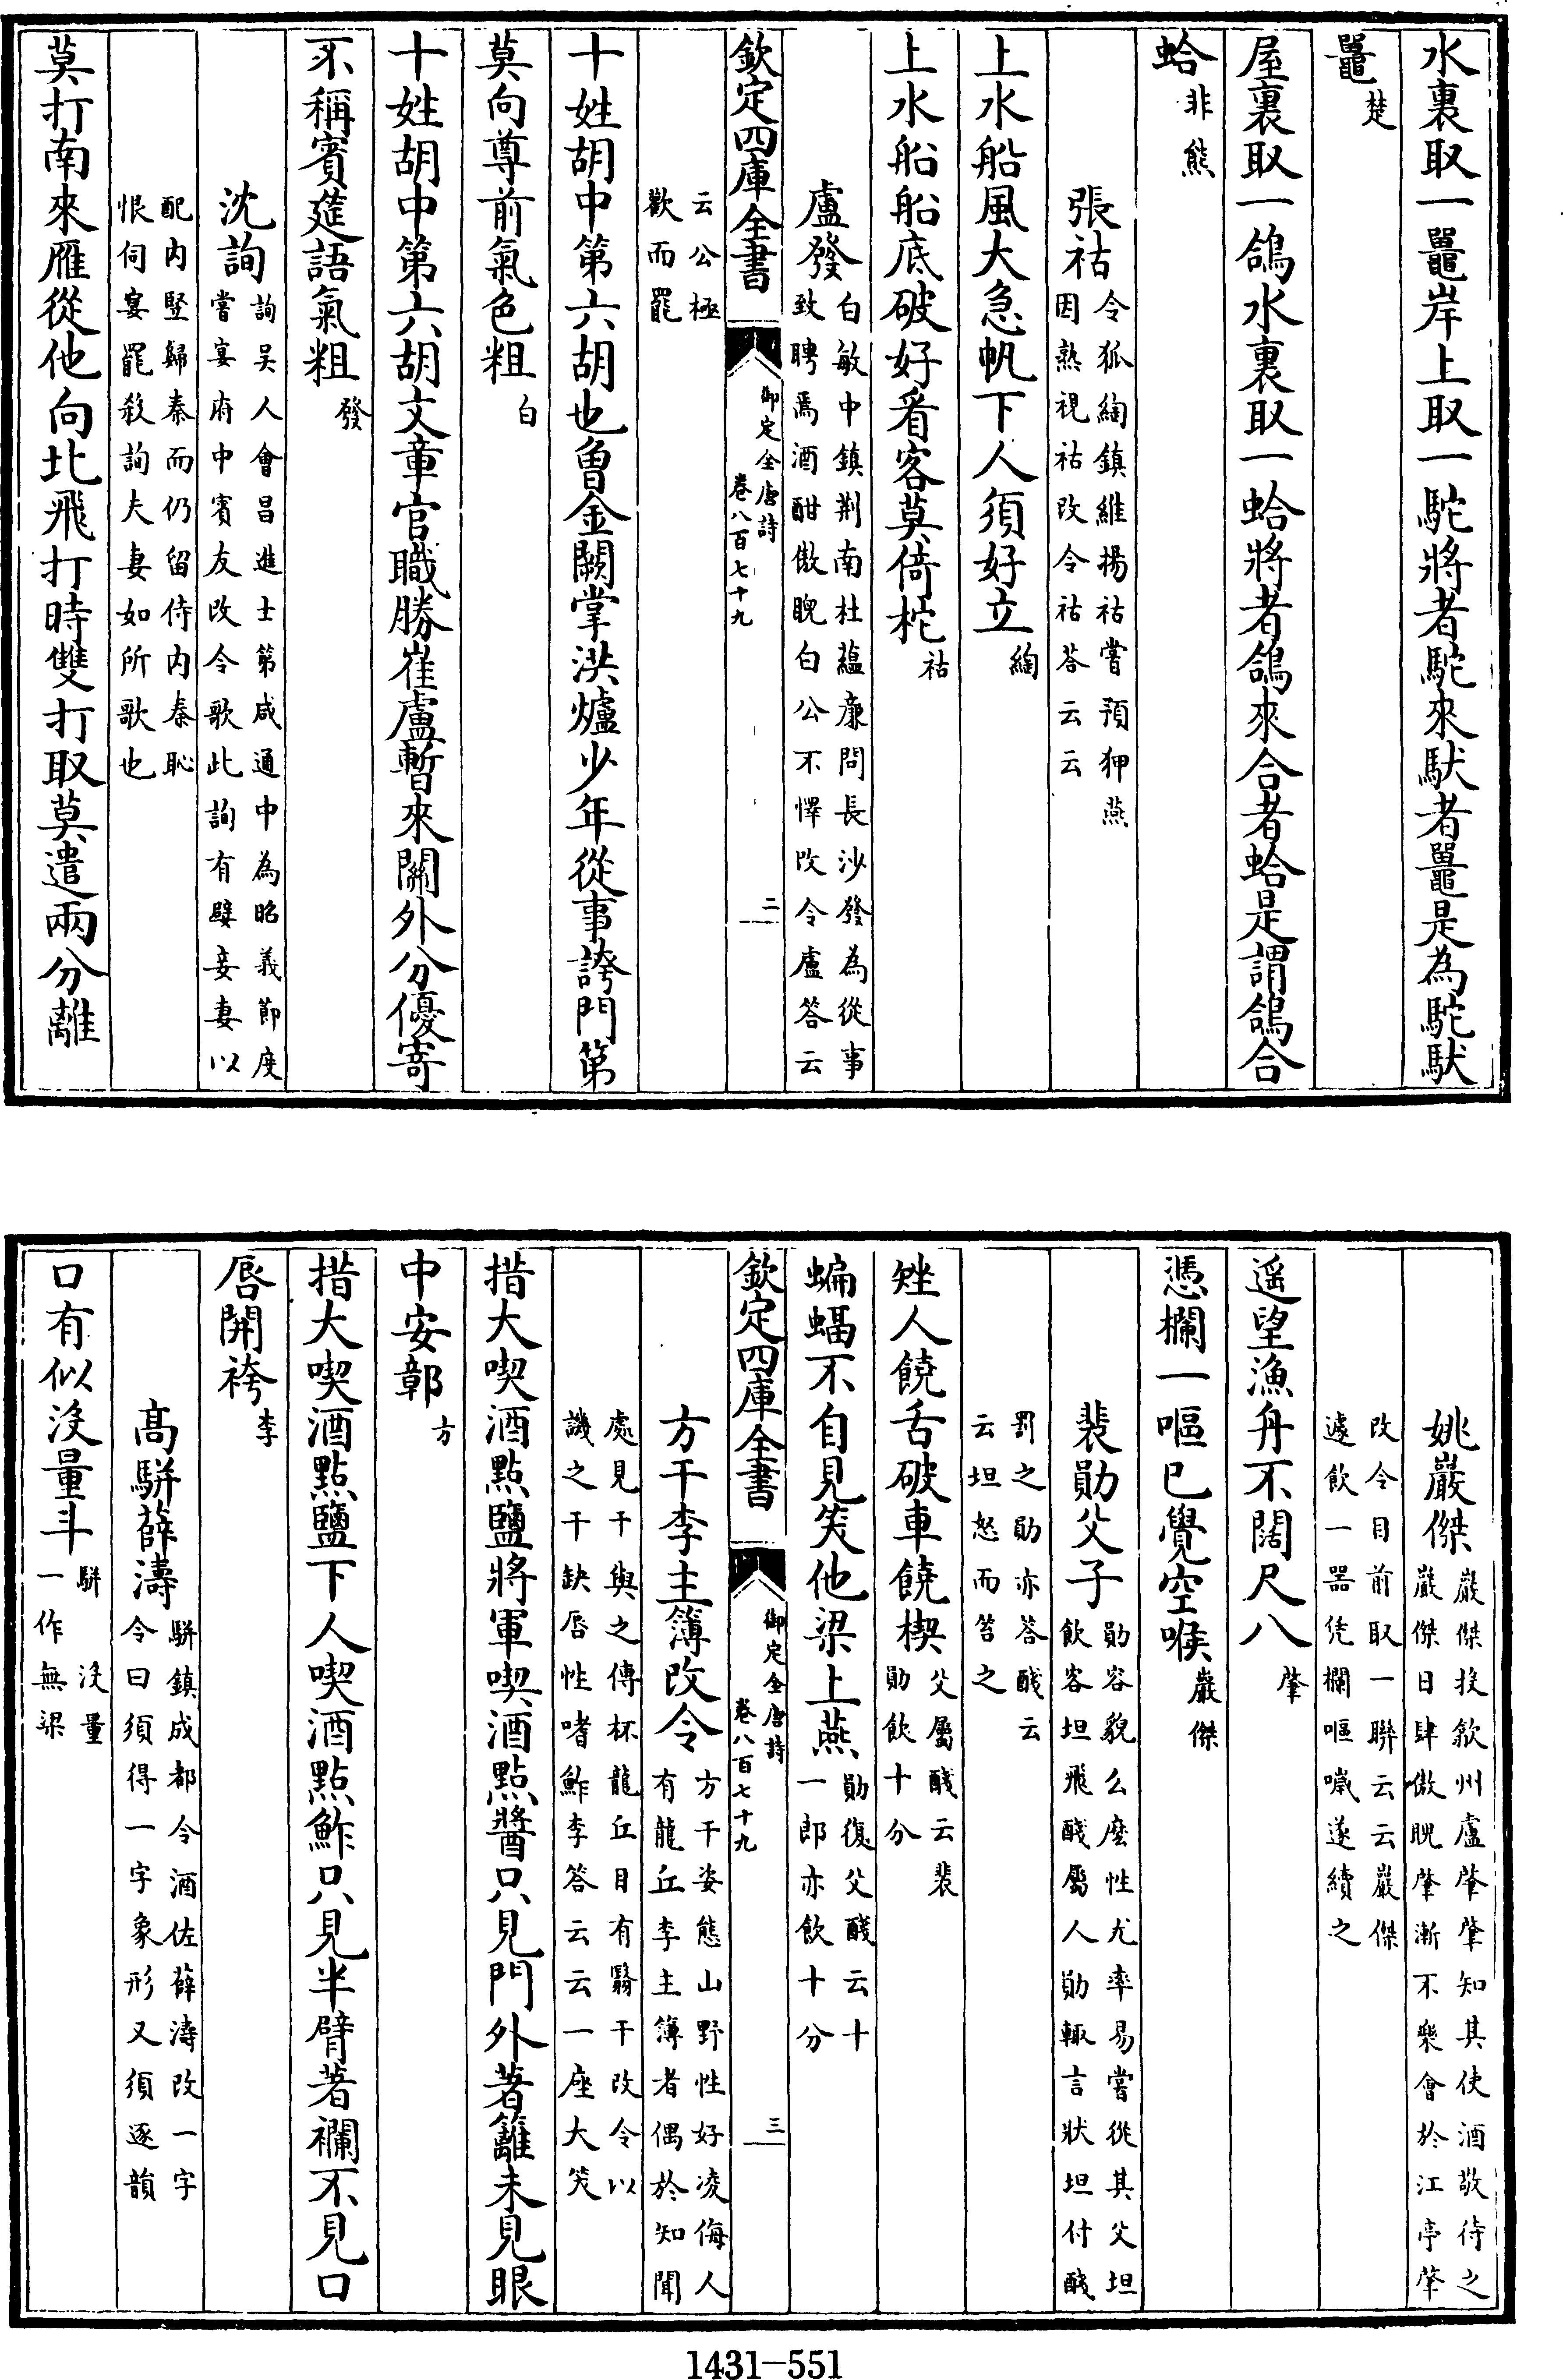 水裏取一鼉岸上取一駝將者駝來馱者鼉是為駝馱
鼉楚
屋裏取一鴿水裏取一蛤將者鴿來合者蛤是謂鴿合
蛤非熊
張祜令狐綯鎮維揚祜嘗預狎燕
因熟視祜改令祜荅云云
上水船風大急帆下人須好立綯
上水船船底破好看客莫倚柁祜
盧發白敏中鎮荆南杜蘊廉問長沙發為從事
致聘焉酒酣傲睨白公不懌改令盧答云
云公極
歡而罷
欽定四庫全書
御定全唐詩
卷八百七十九
二
十姓胡中第六胡也曾金闕掌洪爐少年從事誇門第
莫向尊前氣色粗白
十姓胡中第六胡文章官職勝崔盧暫來關外分優寄
不稱賓筵語氣粗發
沈詢詢吳人會昌進士第咸通中為昭義節度
嘗宴府中賓友改令歌此詢有嬖妾妻以
配內竪歸秦而仍留侍內秦恥
恨伺宴罷殺詢夫妻如所歌也
莫打南來雁從他向北飛打時雙打取莫遣兩分離
姚巖傑巖傑投歙州盧肇肇知其使酒敬待之
巖傑日肆傲睨肇漸不樂會於江亭肇
改令目前取一聯云云巖傑
遽飲一器凭欄嘔噦遂續之
遥望漁舟不闊尺八肇
憑欄一嘔已覺空喉巖傑
裴勛父子勛容貌么麼性尤率易嘗從其父坦
飲客坦飛醆屬人勛輒言狀坦付醆
罰之勛亦答醆云
云坦怒而笞之
矬人饒舌破車饒楔父屬醆云裴
勛飲十分
蝙蝠不自見笑他梁上燕勛復父醆云十
一郎亦飲十分
欽定四庫全書
御定全唐詩
卷八百七十九
三
方干李主簿改令方干姿態山野性好凌侮人
有龍丘李主簿者偶於知聞
處見干與之傳杯龍丘目有翳干改令以
譏之干缺唇性嗜鮓李答云云一座大笑
措大喫酒點鹽將軍喫酒點醬只見門外著籬未見眼
中安鄣方
措大喫酒點鹽下人喫酒點鮓只見半臂著襴不見口
唇開袴李
高駢薛濤駢鎮成都令酒佐薛濤改一字
令曰須得一字象形又須逐韻
口有似没量斗駢 没量
一作無梁
1431—551